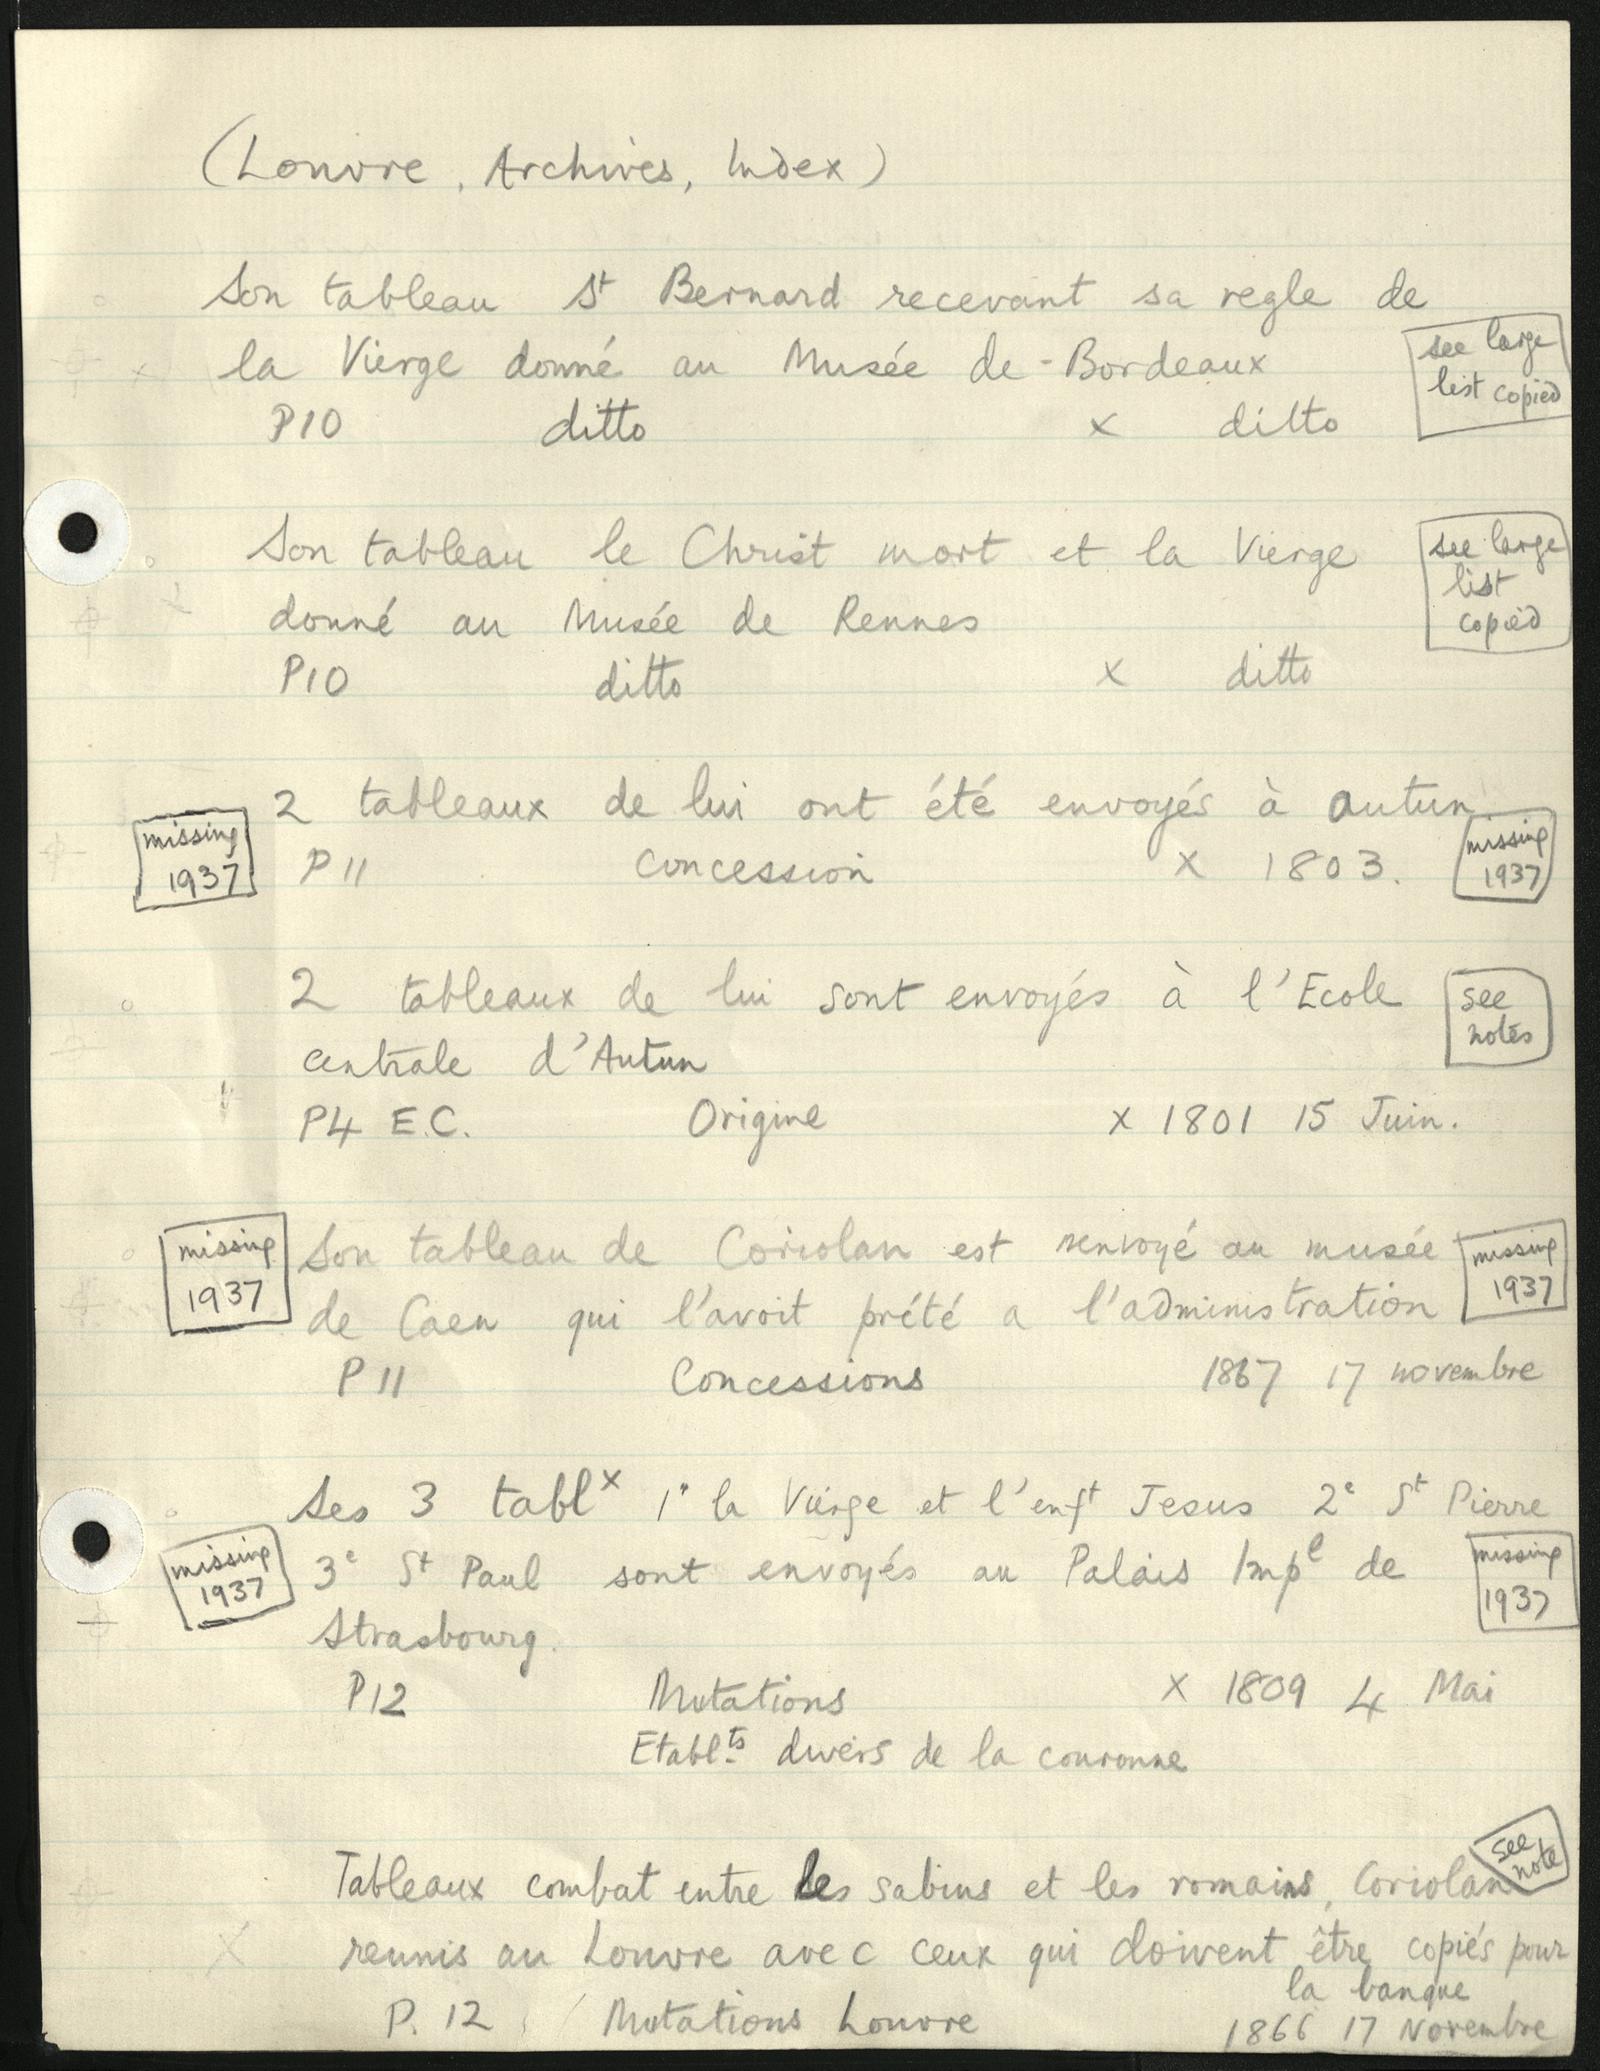 (Louvre, Archives, Index)
Son tableau St Bernard recevant sa regle de
la Vierge donné au Musée de-Bordeaux
see large
list copied
P10 ditto x ditto
Son tableau le Christ mort et la Vierge
donné au Musée de Rennes
see large
list
copied
P10 ditto x ditto
2 tableaux de lui ont été envoyés à autun
missing
1937
P 11 Concession x 1803.
missing
1937
2 tableaux de lui sont envoyés à l'Ecole
centrale d'Autun
see
notes
P4 E.C. Origine x 1801 15 Juin.
missing
1937
Son tableau de Coriolan est renvoyé au musée
de Caen qui l'avoit prété a l'administration
missing
1937
P 11 Concessions 1867 17 novembre
Ses 3 tablx 1° la Vierge et l'enft Jesus 2e St Pierre
missing
1937
3e St Paul sont envoyés au Palais Impl de
missing
1937
Strasbourg.
P12 Mutations x 1809 4 Mai
Etablts divers de la couronne
see
note
Tableaux combat entre les sabins et les romains, Coriolan
reunis au Louvre avec ceux qui doivent être copiés pour
la banque
P. 12 Mutations Louvre 1866 17 Novembre